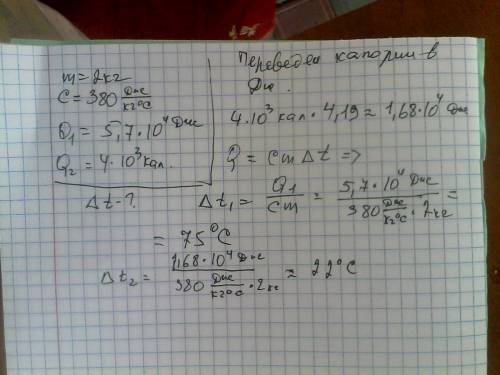 m = 2кг
C = 380 Дж/кг°C
Q₁ = 5,7·10⁴ Дж
Q₂ = 4·10³ кал.
Δt - ?
Переведем калории в
Дж.
4·10³ кал · 4,19 ≈ 1,68·10⁴ Дж
Q = cmΔt =>
Δt₁ = Q₁/cm = 5,7·10⁴ Дж / 380 Дж/кг°C · 2кг =
= 75°C
Δt₂ = 1,68·10⁴ Дж / 380 Дж/кг°C · 2кг ≈ 22°C